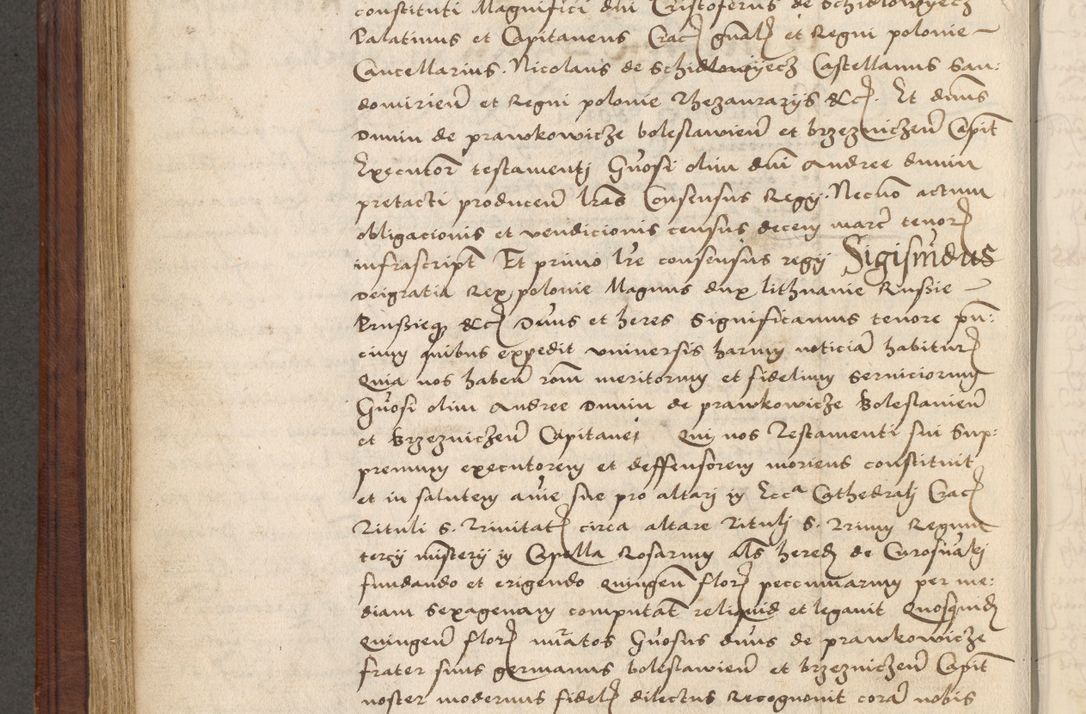 constituti Magnifici dni Cristoferus de Schidlowyecz
Palatinus et Capitaneus Crac gnal et Regni polonie
Cancellarius. Nicolaus de Schidlowyecz Castellanus San:
domirien et Regni polonie Thezaurarijs &c. Et dnus
Dunin de prawkowicze boleslawien et brzezniczen Capit
Executor testamenti Gnosi olim dni Andree dunin
pretacti producen lras Consensus Regij. Necno actum
obligacionis et vendicionis census decem marc tenor
infrascript Et primo lre consensus regij Sigismudus
Deigratia Rex polonie Magnus dux lithuanie Russie
Prussieq &c Dnus et heres Significamus tenore pn:
cium quibus expedit vniuersis harum noticia habitur
Quia nos haben rom meritorum et fidelium seruiciorum
Gnosi olim Andree Dunin de prawkowicze Boleslauien
et Brzezniczen Capitanei Qui nos Testamenti sui Sup:
premum executorem et deffensorem moriens constituit
et in salutem aie sue pro altari in Ecca Cathedrali Crac
Tituli S. Trinitat circa altare Tituli S. Trium Regum
tercij misterij in Capella Rosarum als hered de Curosuali
fundando et erigendo Quingen flor peccuniarum per me:
diam sexagenam computat reliquid et legauit Quosquid
Quingen flor miatos Gnosus dnus de prawkowicze
frater suus germanus boleslawien et brzezniczen Capit
noster modernus fidel dilectus Recognouit cora nobis